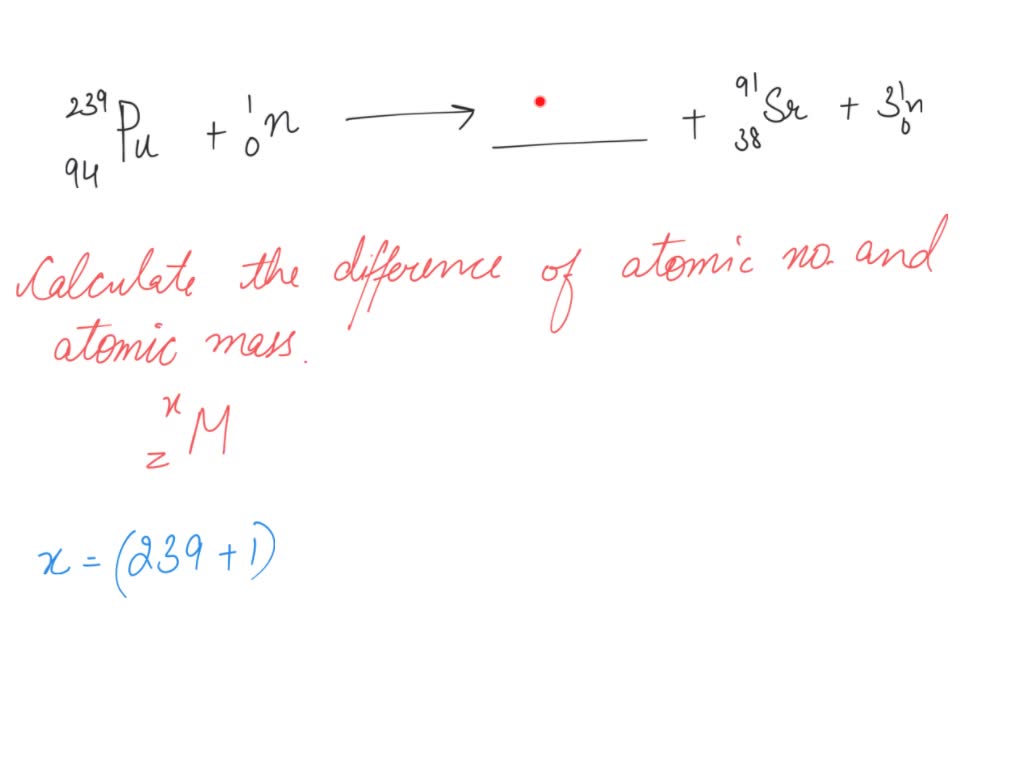 ²³⁹₉₄Pu + ¹₀n ⟶ ____ + ⁹¹₃₈Sr + 3¹₀n
Calculate the difference of atomic no. and
atomic mass.
ˣ_zM
x = (239 + 1)